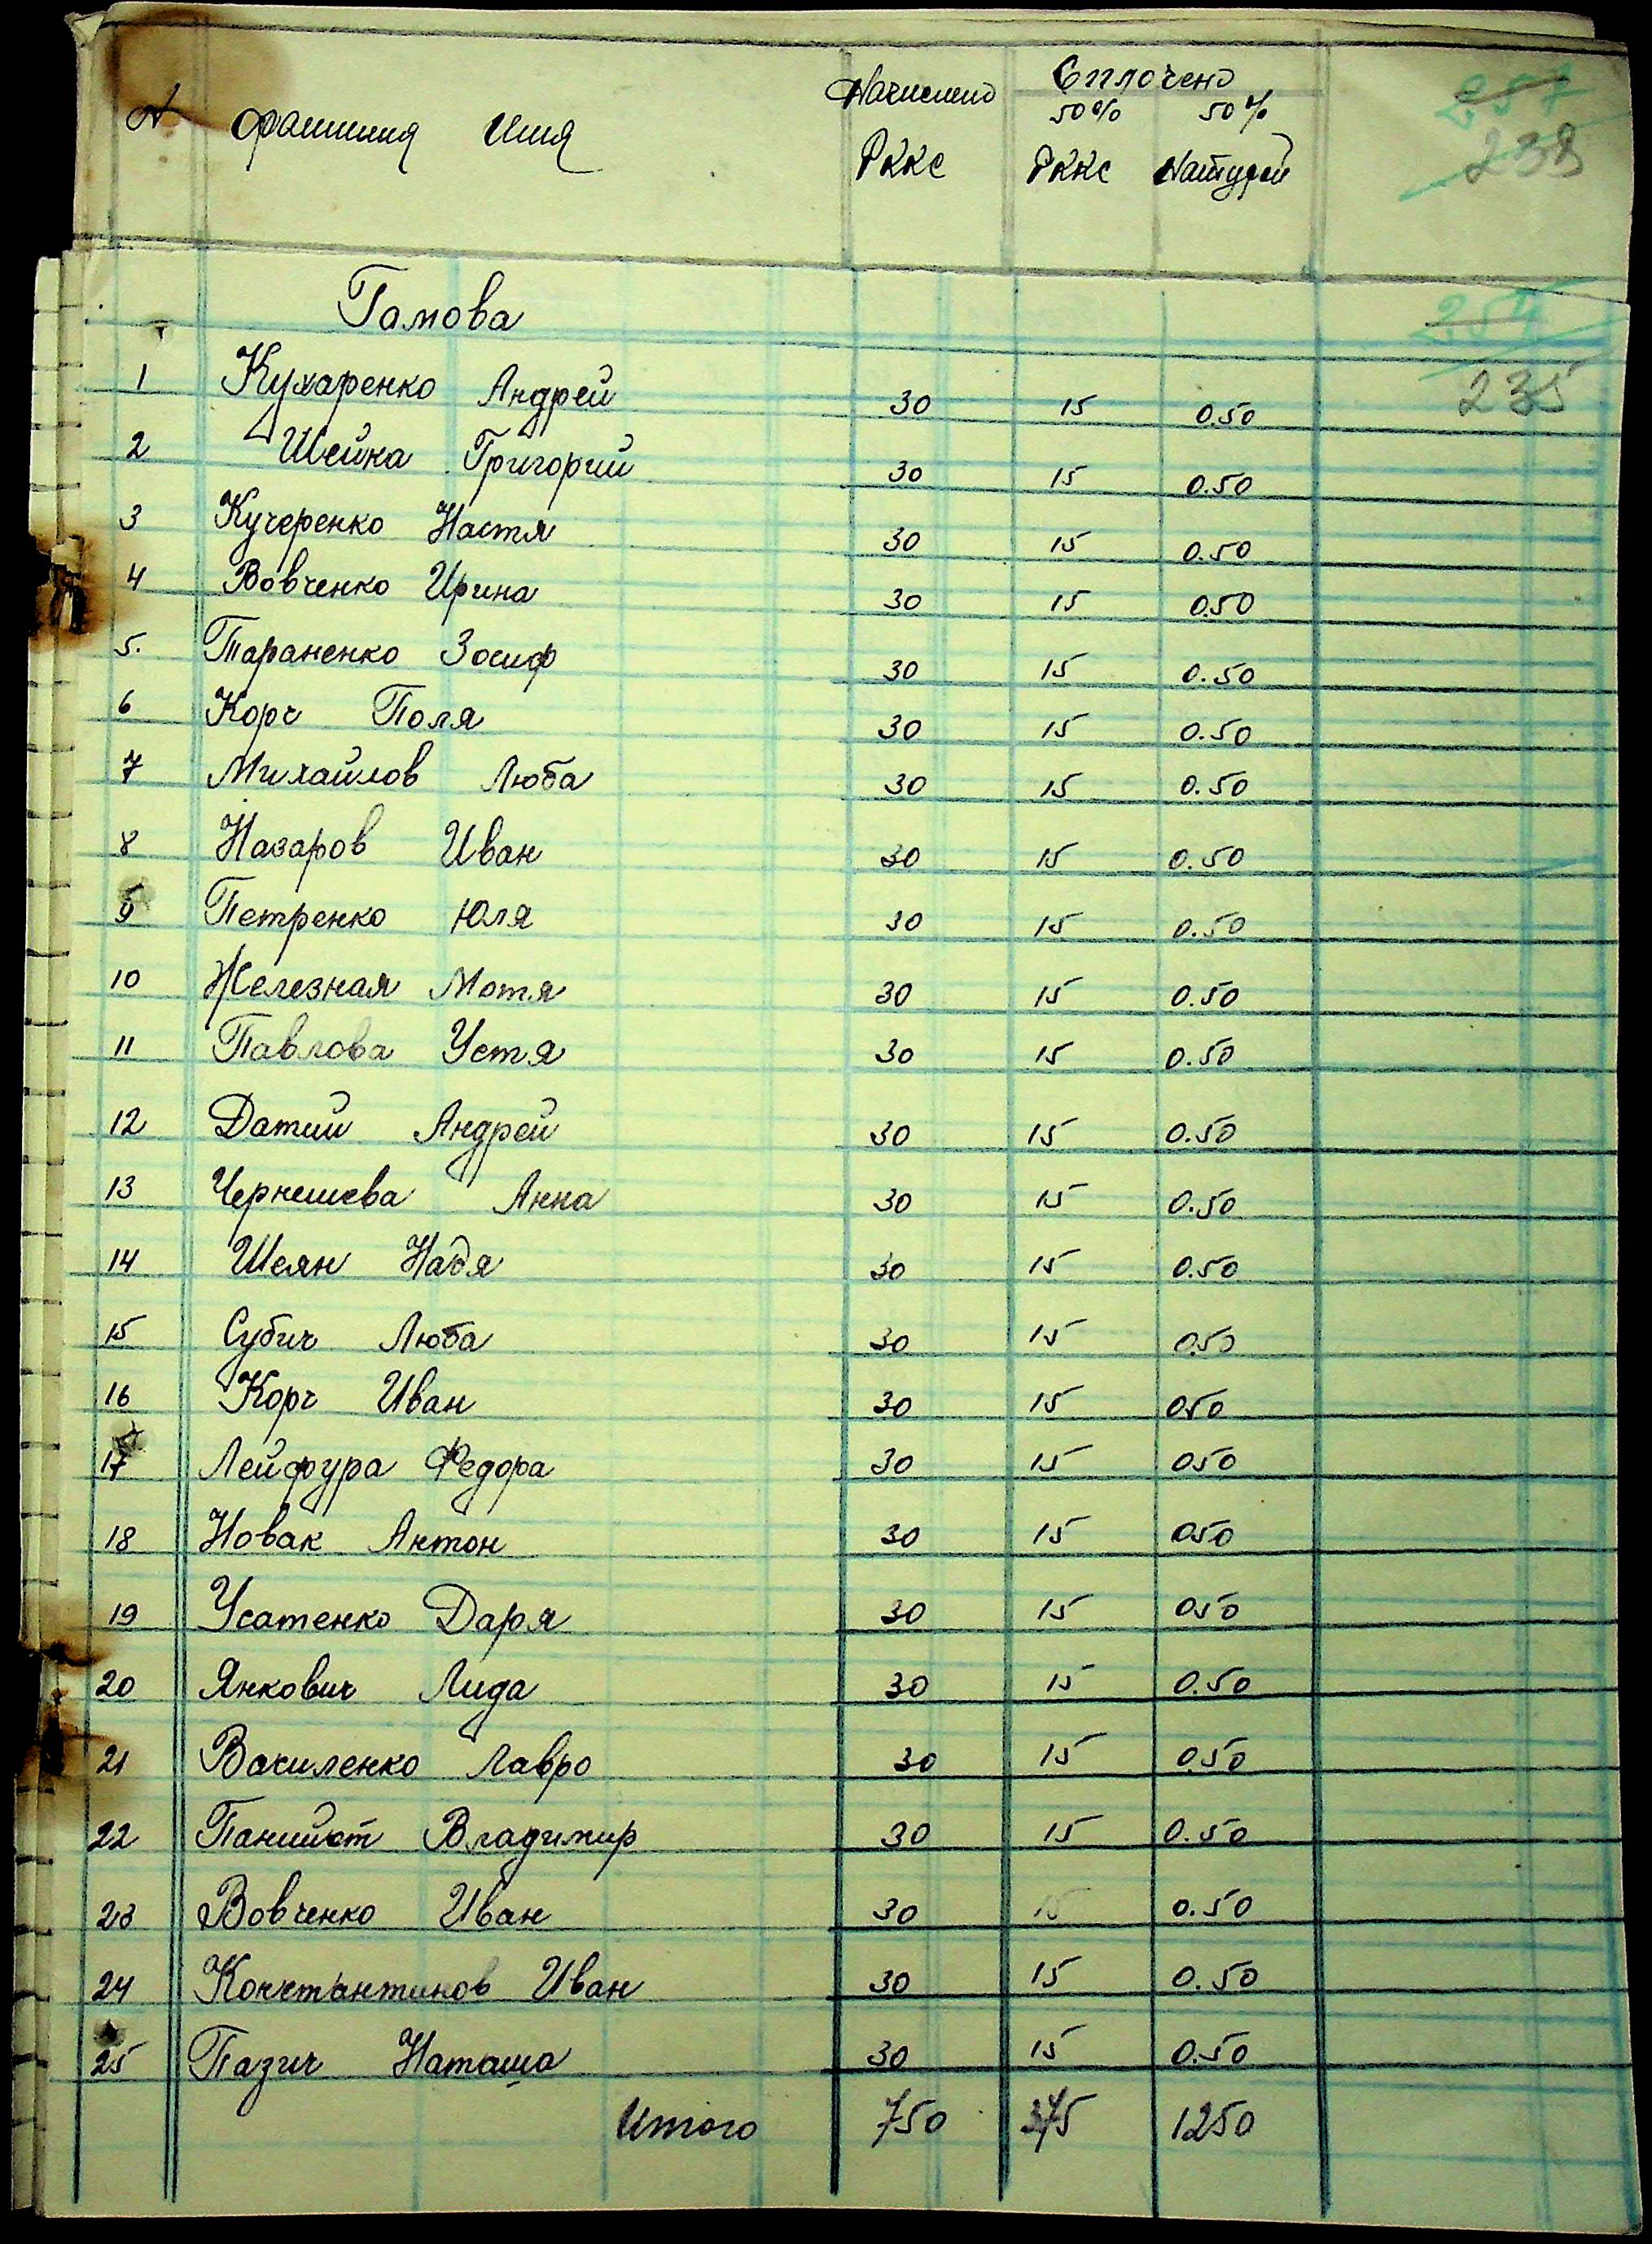 № фамилия имя Начислено Сплочено
50% 50%
РККС РККС Натурой
257
238
Гамова
254
235
1 Кухаренко Андрей 30 15 0.50
2 Шейка Григорий 30 15 0.50
3 Кучеренко Настя 30 15 0.50
4 Вовченко Ирина 30 15 0.50
5. Тараненко Зосиф 30 15 0.50
6 Корч Поля 30 15 0.50
7 Михайлов Люба 30 15 0.50
8 Назаров Иван 30 15 0.50
9 Петренко Юля 30 15 0.50
10 Железная Мотя 30 15 0.50
11 Павлова Устя 30 15 0.50
12 Датий Андрей 30 15 0.50
13 Чернешева Анна 30 15 0.50
14 Шеян Надя 30 15 0.50
15 Субич Люба 30 15 0.50
16 Корч Иван 30 15 050
17 Лейфура Федора 30 15 050
18 Новак Антон 30 15 050
19 Усатенко Даря 30 15 050
20 Янкович Лида 30 15 0.50
21 Василенко Лавро 30 15 0.50
22 Панийот Владимир 30 15 0.50
23 Вовченко Иван 30 15 0.50
24 Константинов Иван 30 15 0.50
25 Пазич Наташа 30 15 0.50
Итого 750 375 1250